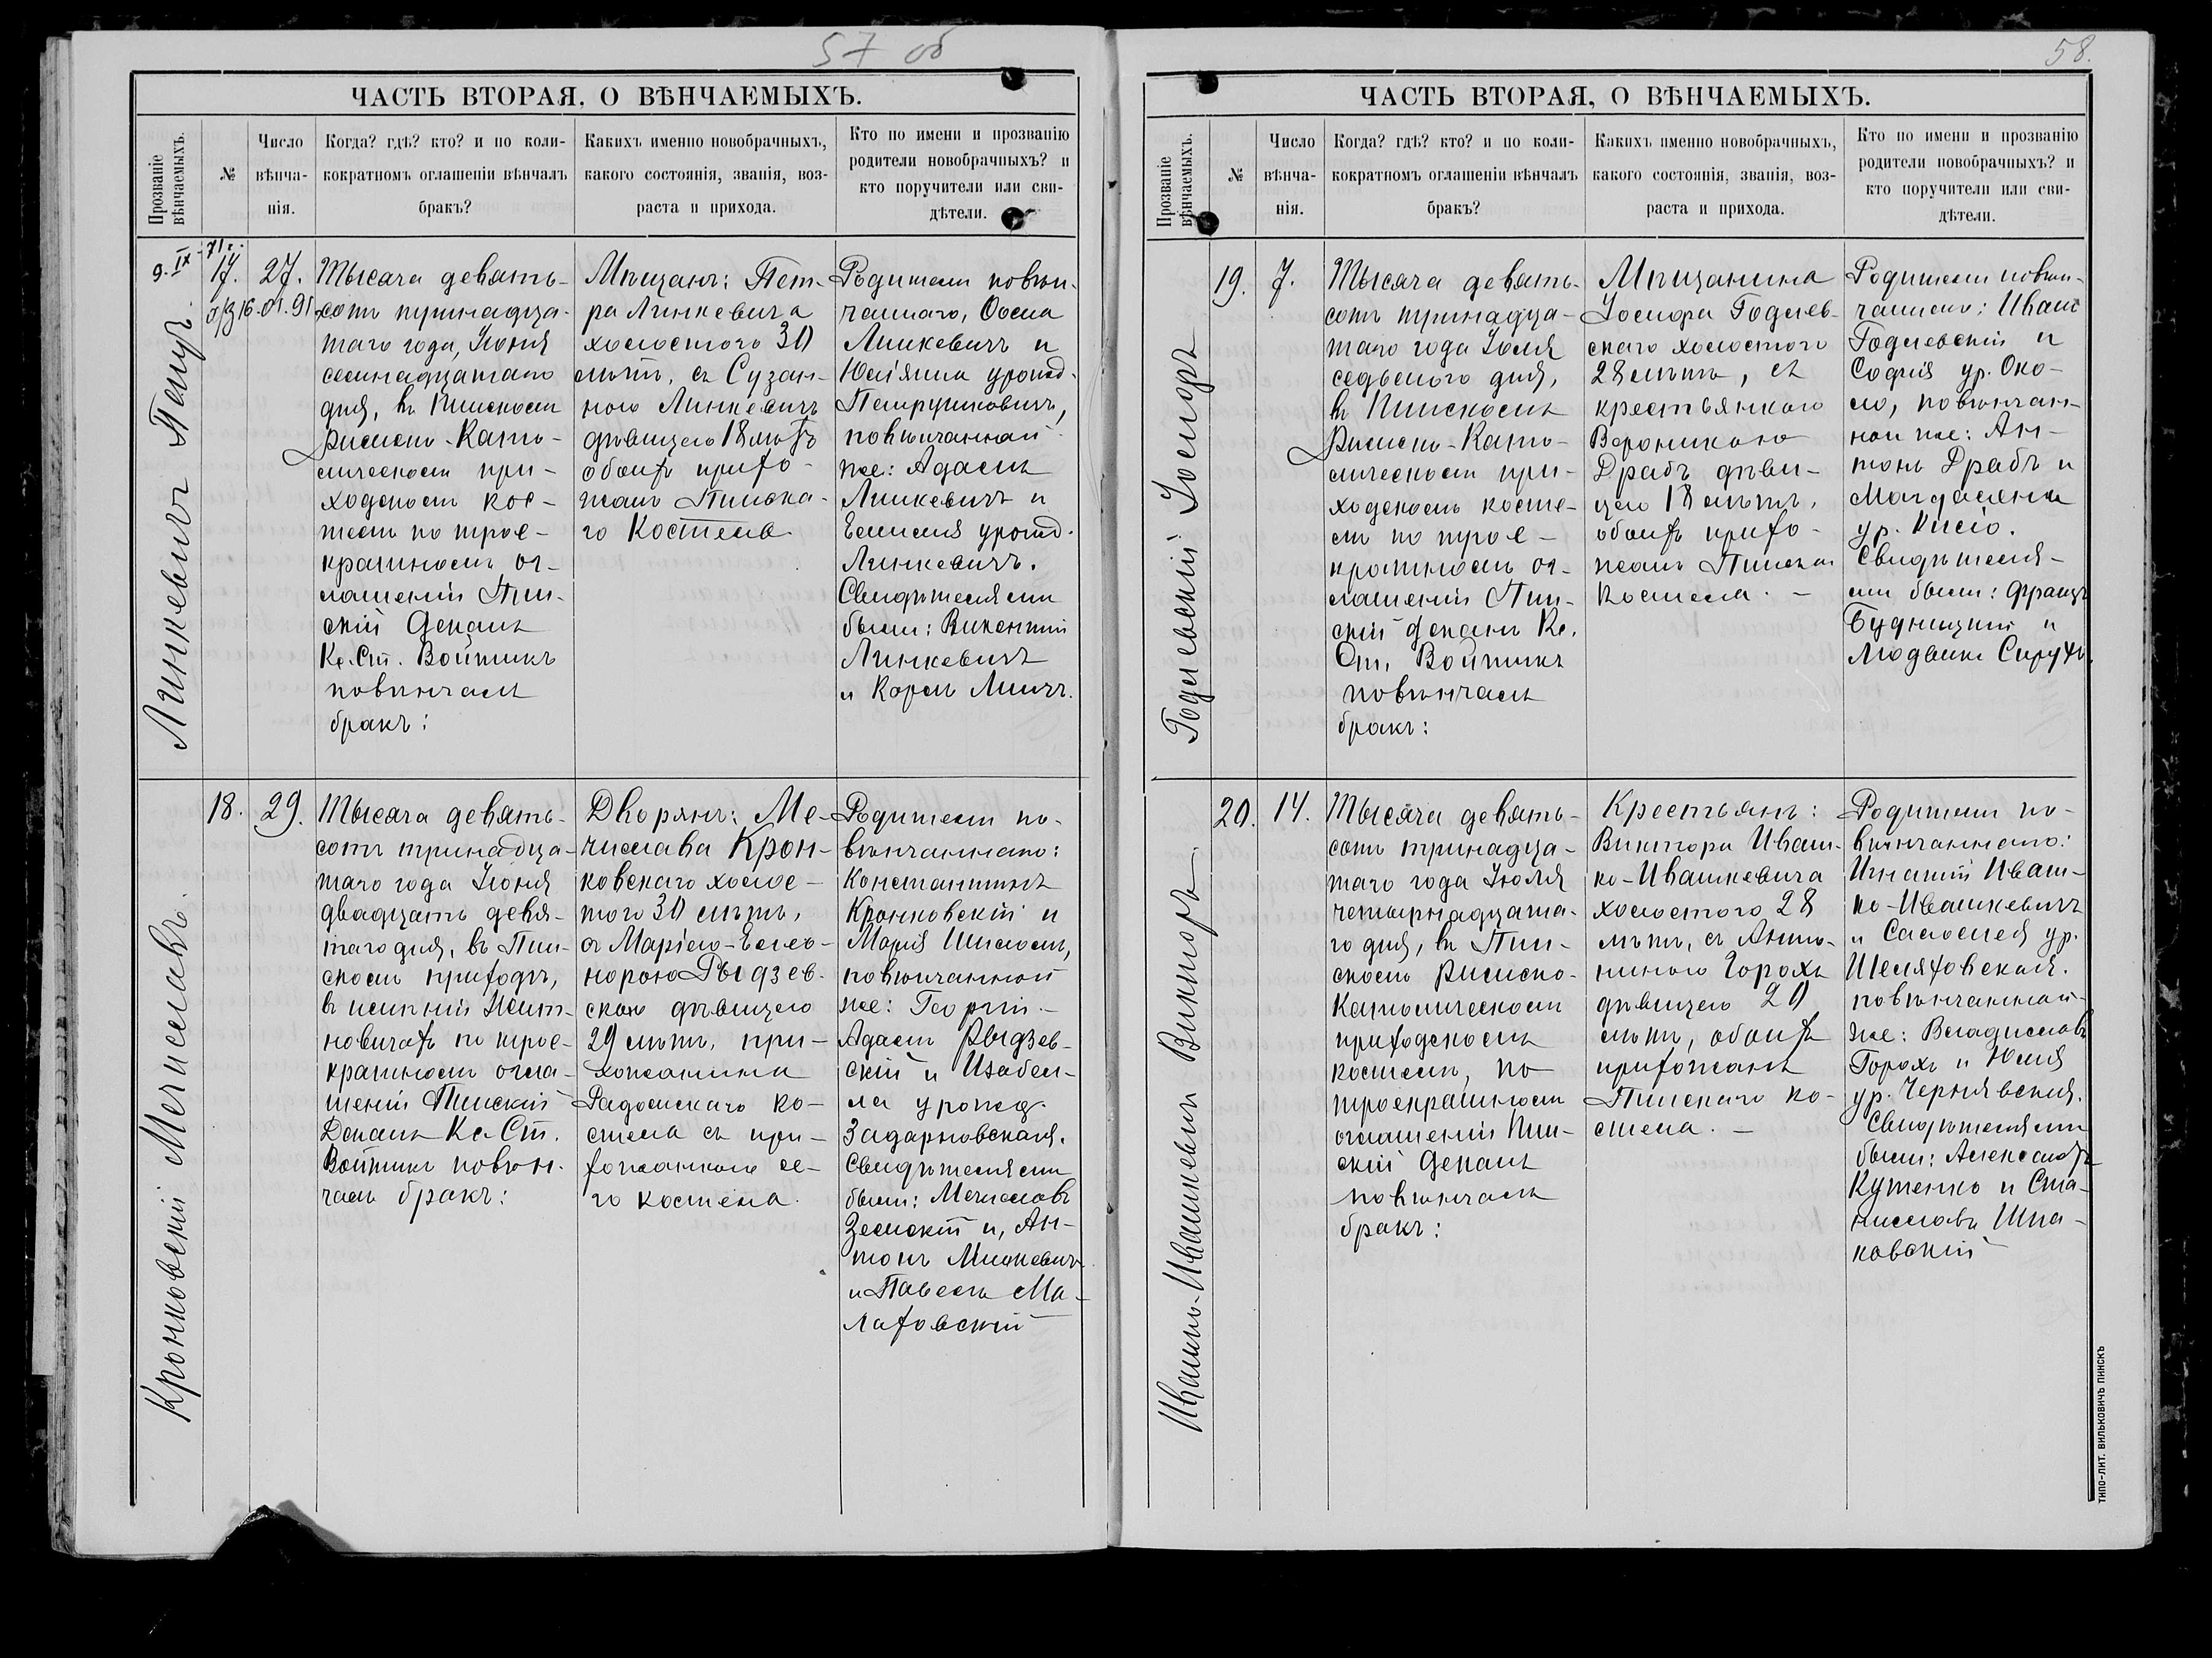 57 об
ЧАСТЬ ВТОРАЯ, О ВѢНЧАЕМЫХЪ.
Прозваніе
вѣнчаемыхъ.
№
Число
вѣнча-
нія.
Когда? гдѣ? кто? и по коли-
кократномъ оглашеніи вѣнчалъ
бракъ?
Какихъ именно новобрачныхъ,
какого состоянія, званія, воз-
раста и прихода.
Кто по имени и прозванію
родители новобрачныхъ? и
кто поручители или сви-
дѣтели.
9.IX-71г.
Линкевичъ Петръ.
17.
16.01.91
27.
Тысяча девять-
сотъ тринадца-
таго года, Іюня
семнадцатаго
дня, въ Пинскомъ
Римско-Като-
лическомъ при-
ходскомъ кос-
телѣ по трое-
кратномъ ог-
лашеніи Пин-
скій Деканъ
Кс. Ст. Войтикъ
повѣнчалъ
бракъ:
Мѣщанъ: Пет-
ра Линкевича
холостого 30
лѣтъ, съ Сузан-
ною Линкевичъ
дѣвицею 18 лѣтъ
обоихъ прихо-
жанъ Пинска-
го Костела.
Родители повѣн-
чаннаго, Осипа
Линкевичъ и
Юліянна урожд.
Петрушкевичъ,
повѣнчанной
же: Адамъ
Линкевичъ и
Емилія урожд.
Линкевичъ.
Свидѣтелями
были: Викентій
Линкевичъ
и Карлъ Линч.
Кронковскій Мечиславъ.
18.
29.
Тысяча девять-
сотъ тринадца-
таго года Іюня
двадцать девя-
таго дня, въ Пин-
скомъ приходѣ,
въ имѣніи
новичахъ по трое-
кратномъ огла-
шеніи Пинскій
Деканъ Кс. Ст.
Войтикъ повѣн-
чалъ бракъ:
Дворянъ: Ме-
числава Крон-
ковскаго холос-
того 30 лѣтъ,
съ Маріею-Елео-
норою Рыдзев-
скою дѣвицею
29 лѣтъ, при-
хожанина
Радомскаго ко-
стела съ при-
хожанкою се-
го костела.
Родители по-
вѣнчаннаго:
Константинъ
Кронковскій и
Марія
повѣнчанной
же: Георгій-
Адамъ Рыдзев-
скій и Изабел-
ла урожд.
Задарновская.
Свидѣтелями
были: Мечиславъ
и, Ан-
тонъ
и Павелъ Ма-
лаховскій
58.
ЧАСТЬ ВТОРАЯ, О ВѢНЧАЕМЫХЪ.
Прозваніе
вѣнчаемыхъ.
№
Число
вѣнча-
нія.
Когда? гдѣ? кто? и по коли-
кократномъ оглашеніи вѣнчалъ
бракъ?
Какихъ именно новобрачныхъ,
какого состоянія, званія, воз-
раста и прихода.
Кто по имени и прозванію
родители новобрачныхъ? и
кто поручители или сви-
дѣтели.
Годлевскій Іосифъ
19.
7.
Тысяча девять-
сотъ тринадца-
таго года Іюля
седьмого дня,
въ Пинскомъ
Римско-Като-
лическомъ при-
ходскомъ косте-
лѣ по трое-
кратномъ ог-
лашеніи Пин-
скій Деканъ Кс.
Ст. Войтикъ
повѣнчалъ
бракъ:
Мѣщанина
Іосифа Годлев-
скаго холостого
28 лѣтъ, съ
крестьянкою
Вероникою
Драбъ дѣви-
цею 18 лѣтъ,
обоихъ прихо-
жанъ Пинскаго
Костела. -
Родители повѣн-
чаннаго: Иванъ
Годлевскій и
Софія ур. Око-
ло, повѣнчан-
ной же: Ан-
тонъ Драбъ и
Магдалена
ур. Кисло.
Свидѣтеля-
ми были: Францъ
Будницкій и
Людвикъ
Ивашко-Ивашкевичъ Викторъ.
20.
14.
Тысяча девять-
сотъ тринадца-
таго года Іюля
четырнадцата-
го дня, въ Пин-
скомъ Римско-
Католическомъ
приходскомъ
костелѣ, по
троекратномъ
оглашеніи Пин-
скій Деканъ
повѣнчалъ
бракъ:
Крестьянъ:
Виктора Иваш-
ко-Ивашкевича
холостого 28
лѣтъ, съ Анто-
ниною Горохъ
дѣвицею 20
лѣтъ, обоихъ
прихожанъ
Пинскаго ко-
стела. -
Родители по-
вѣнчаннаго:
Игнатій Иваш-
ко-Ивашкевичъ
и Саломея ур.
Шеляховская.
повѣнчанной
же: Владиславъ
Горохъ и Юлія
ур. Чернявская.
Свидѣтелями
были: Александръ
Кутенко и Ста-
ниславъ Шпа-
ковскій
ТИПО-ЛИТ. ВИЛЬКОВИЧЪ ПИНСКЪ